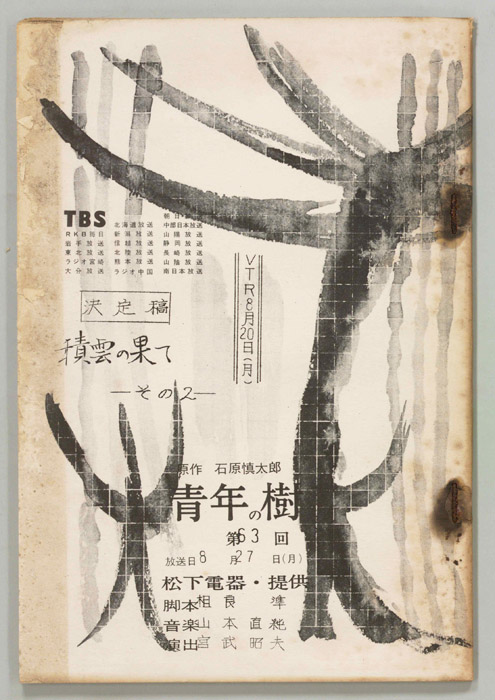 TBS
RKB毎日
岩手放送
東北放送
ラジオ宮城
大分放送
北海道放送
新潟放送
信越放送
北陸放送
熊本放送
ラジオ中国
朝日
中部日本放送
山陽放送
静岡放送
長崎放送
山陰放送
南日本放送
VTR8月20日(月)
決定稿
積雲の果て
—その2—
原作 石原慎太郎
青年の樹
第63回
放送日8月27日(月)
松下電器・提供
脚本 良準
音楽 山本直純
演出 宮武昭夫